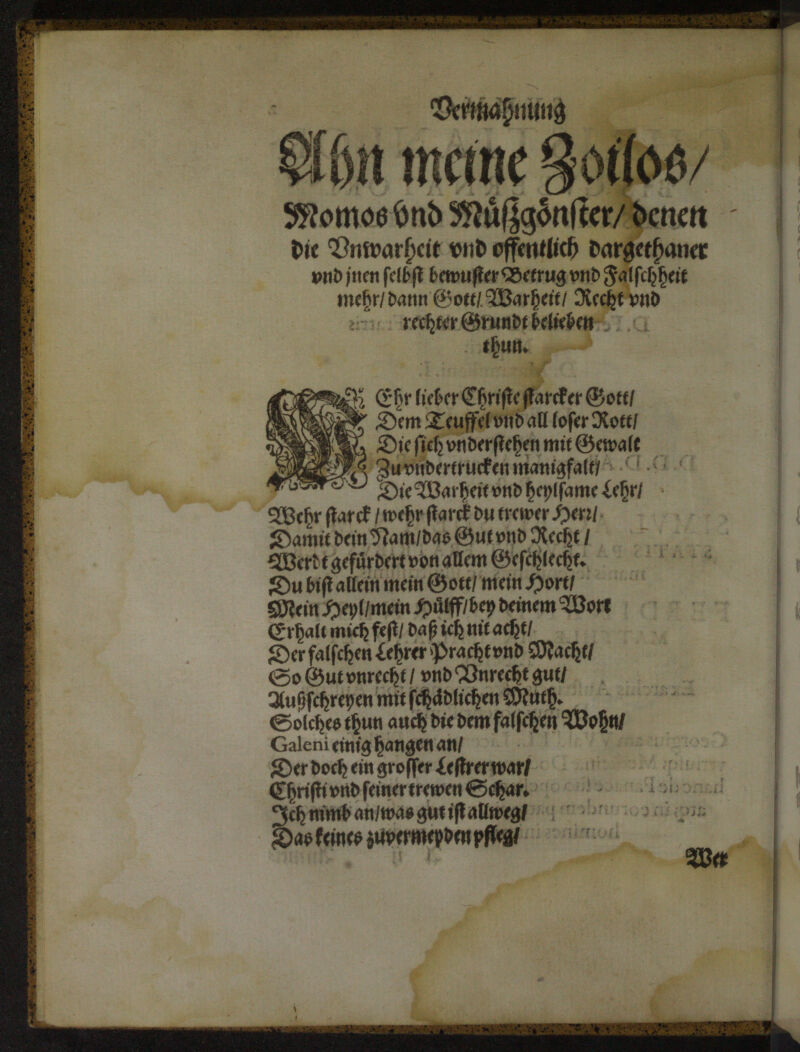 Vermahnung
Ahn meine Zoilos/
Momos vnd Müßgönster/ denen
die Vnwarheit vnd offentlich dargethaner
vnd jnen selbst bewuster Betrug vnd Falschheit
mehr/ dann Gott/ Warheit/ Recht vnd
rechter Grundt belieben
thun.
WEhr lieber Christe starcker Gott/
Dem Teuffel vnd all loser Rott/
Die sich vnderstehen mit Gewalt
Zu vndertrucken manigfalt/
Die Warheit vnd heylsame Lehr/
Wehr starck / wehr starck du trewer Herr/
Damit dein Nam/ das Gut vnd Recht /
Werdt gefürdert von allem Geschlecht.
Du bist allein mein Gott/ mein Hort/
Mein Heyl/ mein Hülff/ bey deinem Wort
Erhalt mich fest/ daß ich nit acht/
Der falschen Lehrer Pracht vnd Macht/
So Gut vnrecht / vnd Vnrecht gut/
Außschreyen mit schädlichen Muth.
Solches thun auch die dem falschen Wohn/
Galeni einig hangen an/
Der doch ein grosser Lestrer war/
Christi vnd seiner trewen Schar.
Ich nimb an/ was gut ist allweg/
Das keines zuvermeyden pfleg/
Wer